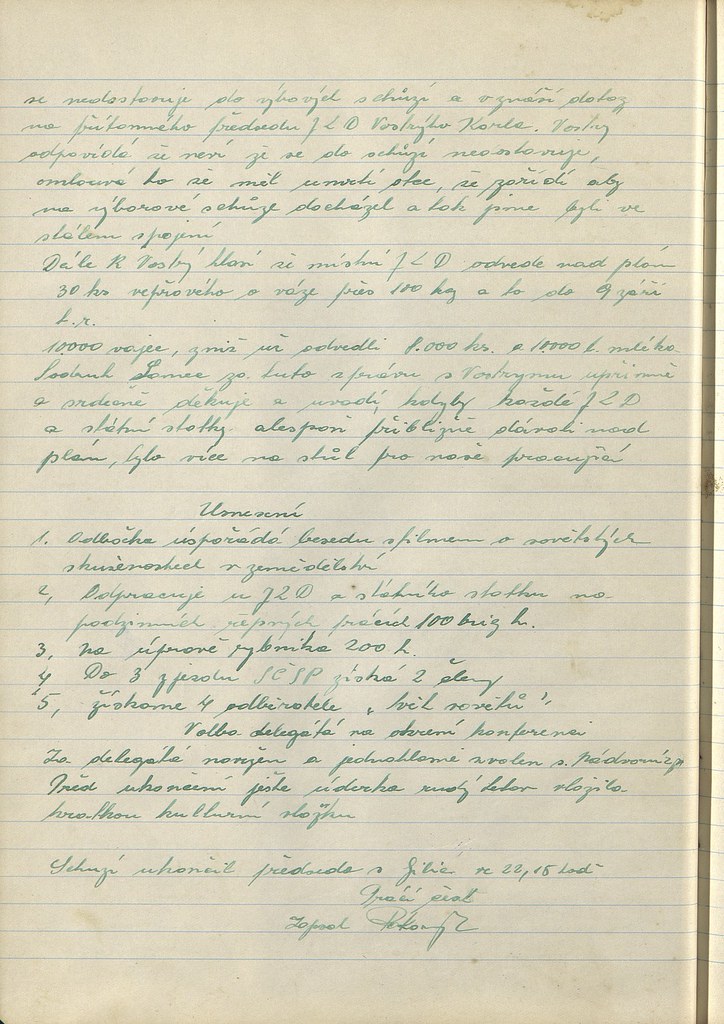 se nedostavuje do výbových schůzí a vznáší dotaz
na přítomného předsedu JZD Vostrýho Karla. Vostrý
odpovídá že neví že se do schůzí nedostavuje,
omlouvá to že měl úmrtí otce, že zařídí aby
na výborové schůze docházel a tak jsme byli ve
stálém spojení
Dále K Vostrý hlásí že místní JZD odvede nad plán
30 ks vepřového o váze přes 100 kg a to do 9 září
t.r.
10000 vajec, z nichž už odvedli 8.000 ks. a 10000 l. mléka.
Soudruh za tuto zprávu s Vostrýmu upřímně
a srdečně děkuje a uvádí, kdyby každé JZD
a státní statky alespoň přibližně dávali nad
plán, bylo více na stůl pro naše pracující
Usnesení
1. Odbočka uspořádá besedu s filmem o sovětských
zkušenostech v zemědělství
2, Odpracuje u JZD a státního statku na
podzimních řepných pracích 100 brig h.
3, na úpravě rybníka 200 h.
4 Do 3 zjezdu SČSP získá 2 členy
5, získáme 4 odběratele „ Svět sovětů “.
Volba delegátá na okresní konferenci
Za delegátá navržen a jednohlasně zvolen s.
Před ukončením ješte úderka rudý házila
kratkou kulturní vložku
Schuzí ukončil předseda s Jilič ve 22,15 hod
Práci čest
Zapsal